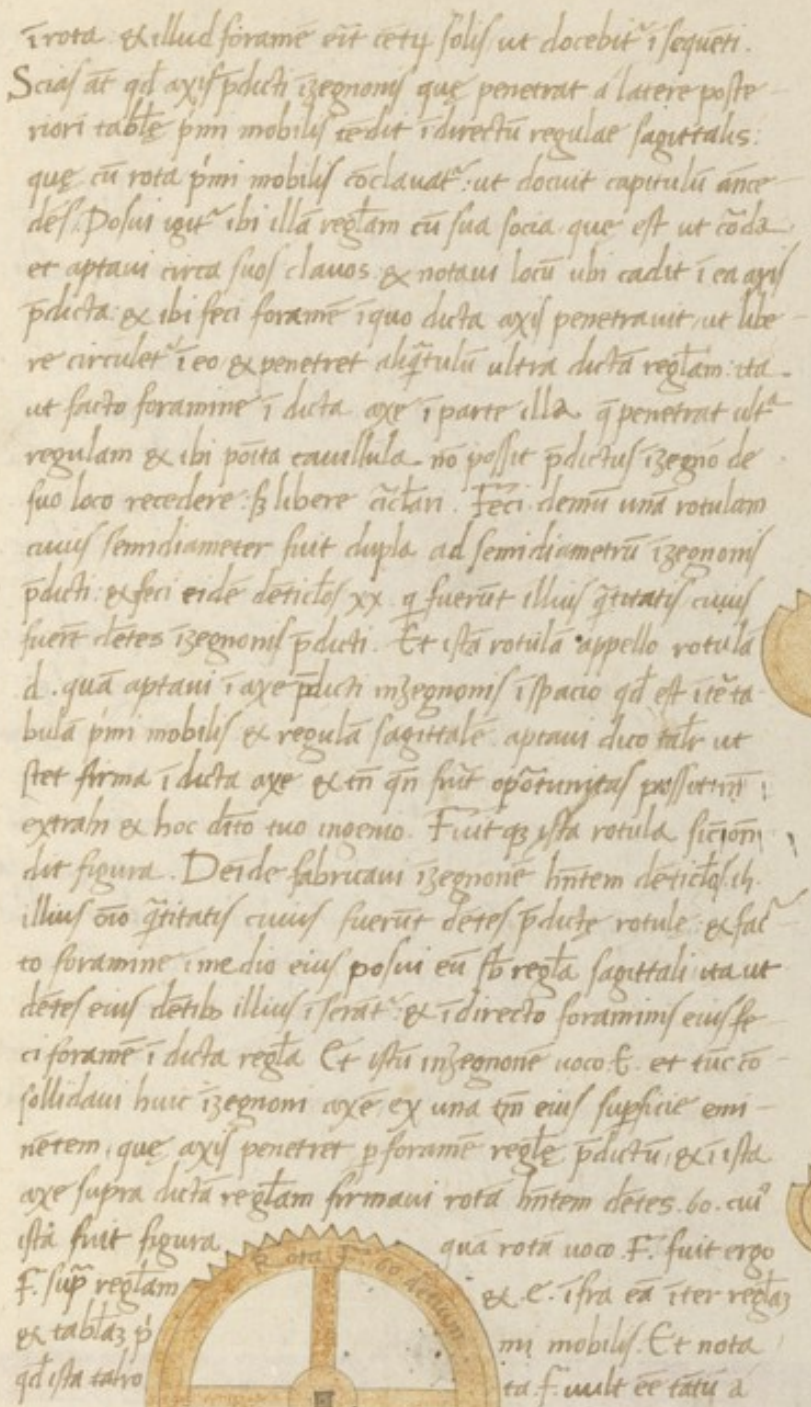 ī rota & illud foramē erit cētrū solis ut docebit᷑ ī sequēti.
Scias āt qd̄ axis p̄dicti īzegnonis quę penetrat a latere poste-
riori tablę pͥmi mobilis tēdit ī directū regulae sagittalis:
quę cū rota pͥmi mobilis cōclavat᷑: ut docuit capitulū ānce-
dēs. Posui igit᷑ ibi illā regl̄am cū sua socia que est ut cōda
et aptavi circa suos clavos: & notavi locū ubi cadit ī ea axis
p̄dicta: & ibi feci foramē ī quo dicta axis penetravit, ut libe-
re circulet᷑ ī eo & penetret aliq̄tulū ultra dictā regl̄am: ita
ut facto foramine ī dicta axe ī parte illa q̄ penetrat ult᷑
regulam & ibi poīta cavillula nō possit p̄dictus īzegno de
suo loco recedere: sꝫ libere cīcl̄ari. Feci demū unā rotulam
cuius semidiameter fuit dupla ad semidiametrū īzegnonis
p̄dicti: & feci eidē dēticl̄os xx q̄ fuerūt illius q̄titatis cuius
fuerīt dētes īzegnonis p̄dicti. Et istā rotulā appello rotulā
d. quā aptavi ī axe p̄dicti inzegnonis ī spacio qd̄ est īter ta-
bulā pͥmi mobilis & regulā sagittalē aptavi dico talr̄ ut
stet firma ī dicta axe & tn̄ qn̄ fūit oportunitas possit
extrahi & hoc dīto tuo ingenio. Fuitqꝫ ista rotula sic
dit figura. Deīde fabricavi īzegnonē hn̄tem dēticl̄os .ii.
illius oīo q̄titatis cuius fuerūt dētes p̄dictę rotule: & fac-
to foramine ī medio eius posui eū sb̄ regl̄a sagittali ita ut
dētes eius dētibꝫ illius īserāt᷑: & ī directo foraminis eius fe-
ci foramē ī dicta regl̄a Et istū inzegnonē voco E. et tūc cō-
sollidavi huic īzegnoni axē ex una tm̄ eius suꝑficie emi-
nētem, quę axis penetret ꝑ foramē reglę p̄dictū, & ī ista
axe supra dictā regl̄am firmavi rotā hn̄tem dētes .60. cuiꝰ
ista fuit figura quā rotā voco .F. fuit ergo
Rota F. 60 dētium
F. sup̄ regl̄am & E. īfra eā īter regl̄aꝫ
& tabl̄aꝫ pͥ mi mobilis. Et nota
qd̄ ista ta ro ta .F. vult eē tātū a